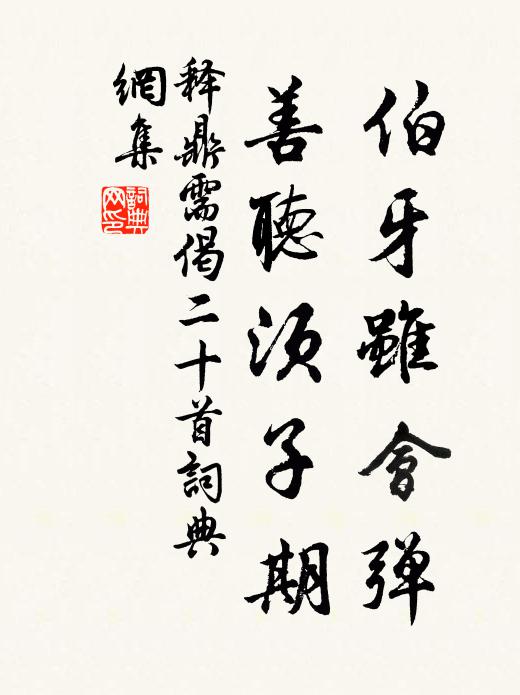 伯牙雖會弾
善聽須子期
释鼎需偈二十首詞典
網集
詞典网印